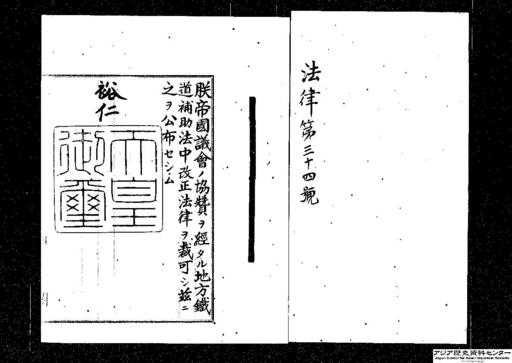 法律第三十四號
朕帝國議會ノ協賛ヲ經タル地方鐵
道補助法中改正法律ヲ裁可シ茲ニ
之ヲ公布セシム
裕仁
天皇
御璽
アジア歴史資料センター
Japan Center for Asian Historical Records